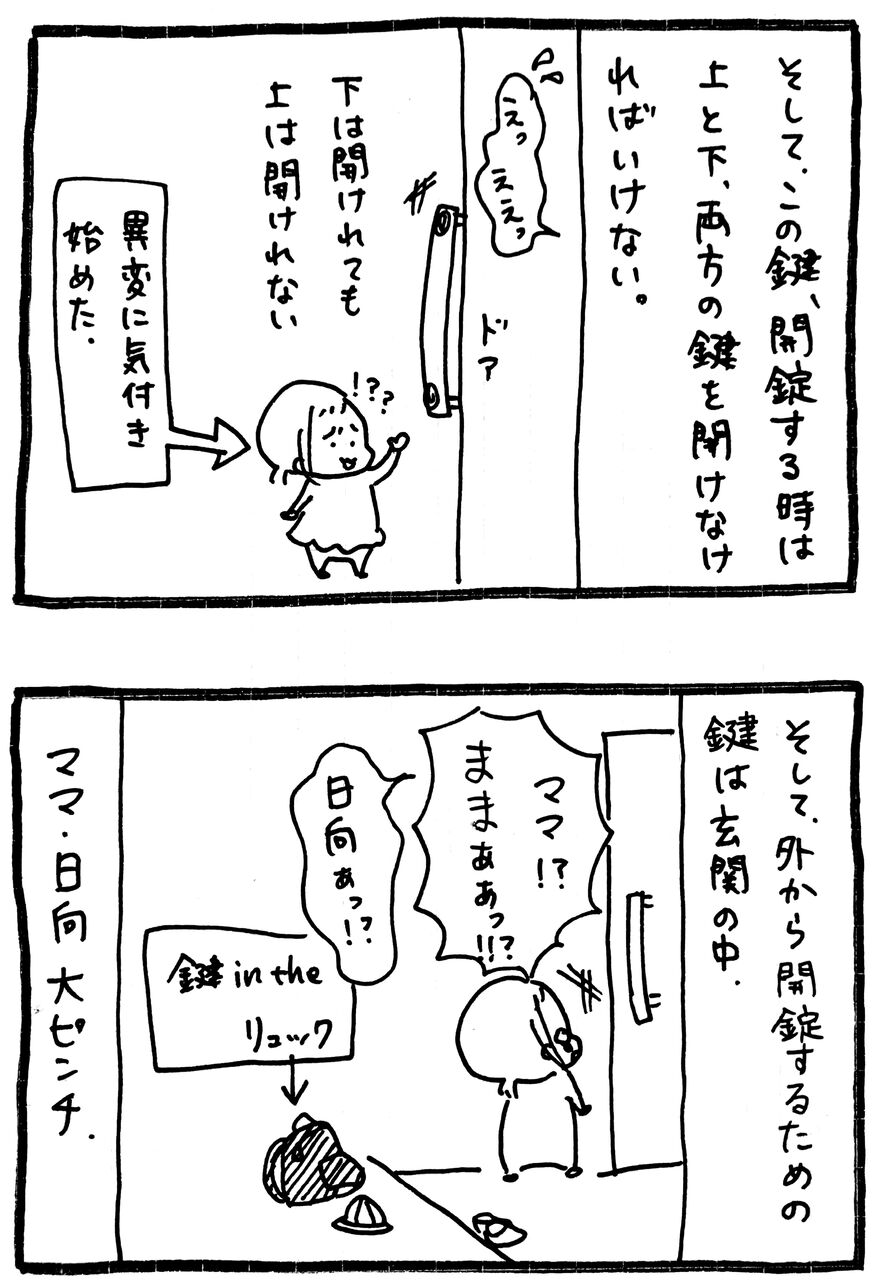 そして、この鍵、開錠する時は
上と下、両方の鍵を開けなけ
ればいけない。
えっ
ええっ
ドア
下は開けれても
上は開けれない
!??
異変に気付き
始めた.
そして、外から開錠するための
鍵は玄関の中.
ママ!?
ままぁぁっ!!?
日向ぁっ!?
鍵 in the
リュック
ママ・日向 大ピンチ.